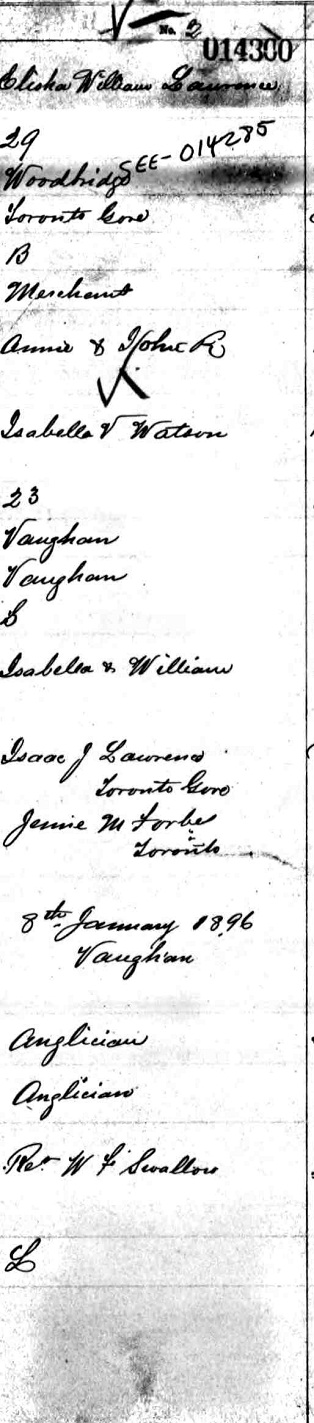 No. 2
014300
Elisha William Lawrence
29
SEE-014285
Woodbridge
Toronto Gore
B
Merchant
Annie & John R
Isabella V Watson
23
Vaughan
Vaughan
S
Isabella & William
Isaac J Lawrence
Toronto Gore
Jennie M Forbes
Toronto
8th January 1896
Vaughan
Anglician
Anglician
Rev W F Swallow
L